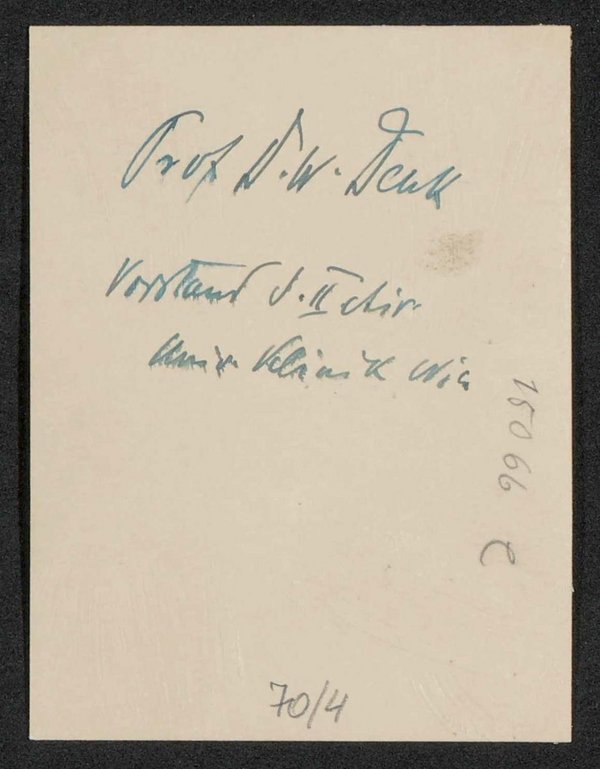 Prof D. W. Denk
Vorstand d. II chir.
Univ. Klinik Wien
15066 C
70/4